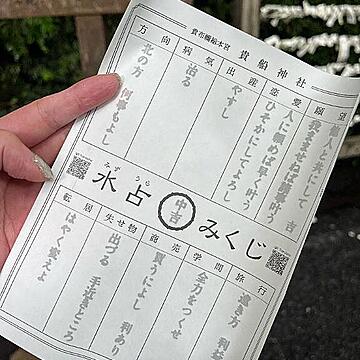 貴布禰総本宮 貴船神社
願望
他人と共にして 吉
諸事叶う
恋愛
人に頼めば早く叶う
ひそかにしてよろし
出産
やすし
病気
治る
方向
北の方 何事もよし
みず うら
水占 中吉 みくじ
旅行
遠き方
学問
全力をつくせ
商売
買うによし 利あり
失せ物
出づる 手近きところ
転居
はやく変えよ